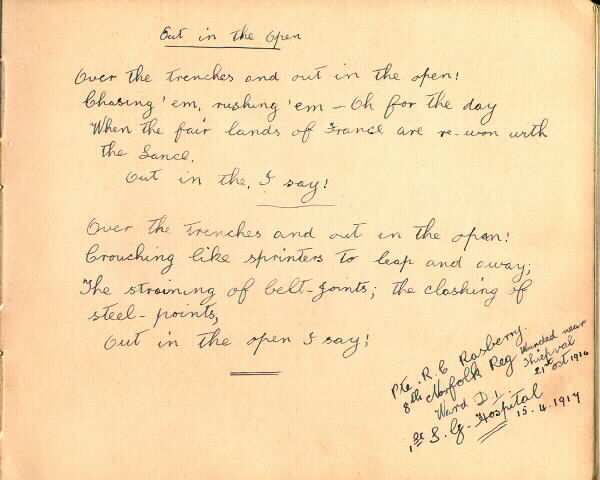 Out in the Open
Over the trenches and out in the open!
Chasing 'em, rushing 'em – Oh for the day
When the fair lands of France are re-won with
the Lance.
Out in the, I say!
Over the trenches and out in the open!
Crouching like sprinters to leap and away;
The straining of belt-joints; the clashing of
steel-points,
Out in the open I say!
Pte. R. C Rasberry.
8th Norfolk Reg Wounded near
Thiepval
21st Oct 1916
Ward D1.
1st S. G. Hospital 15.4.1917